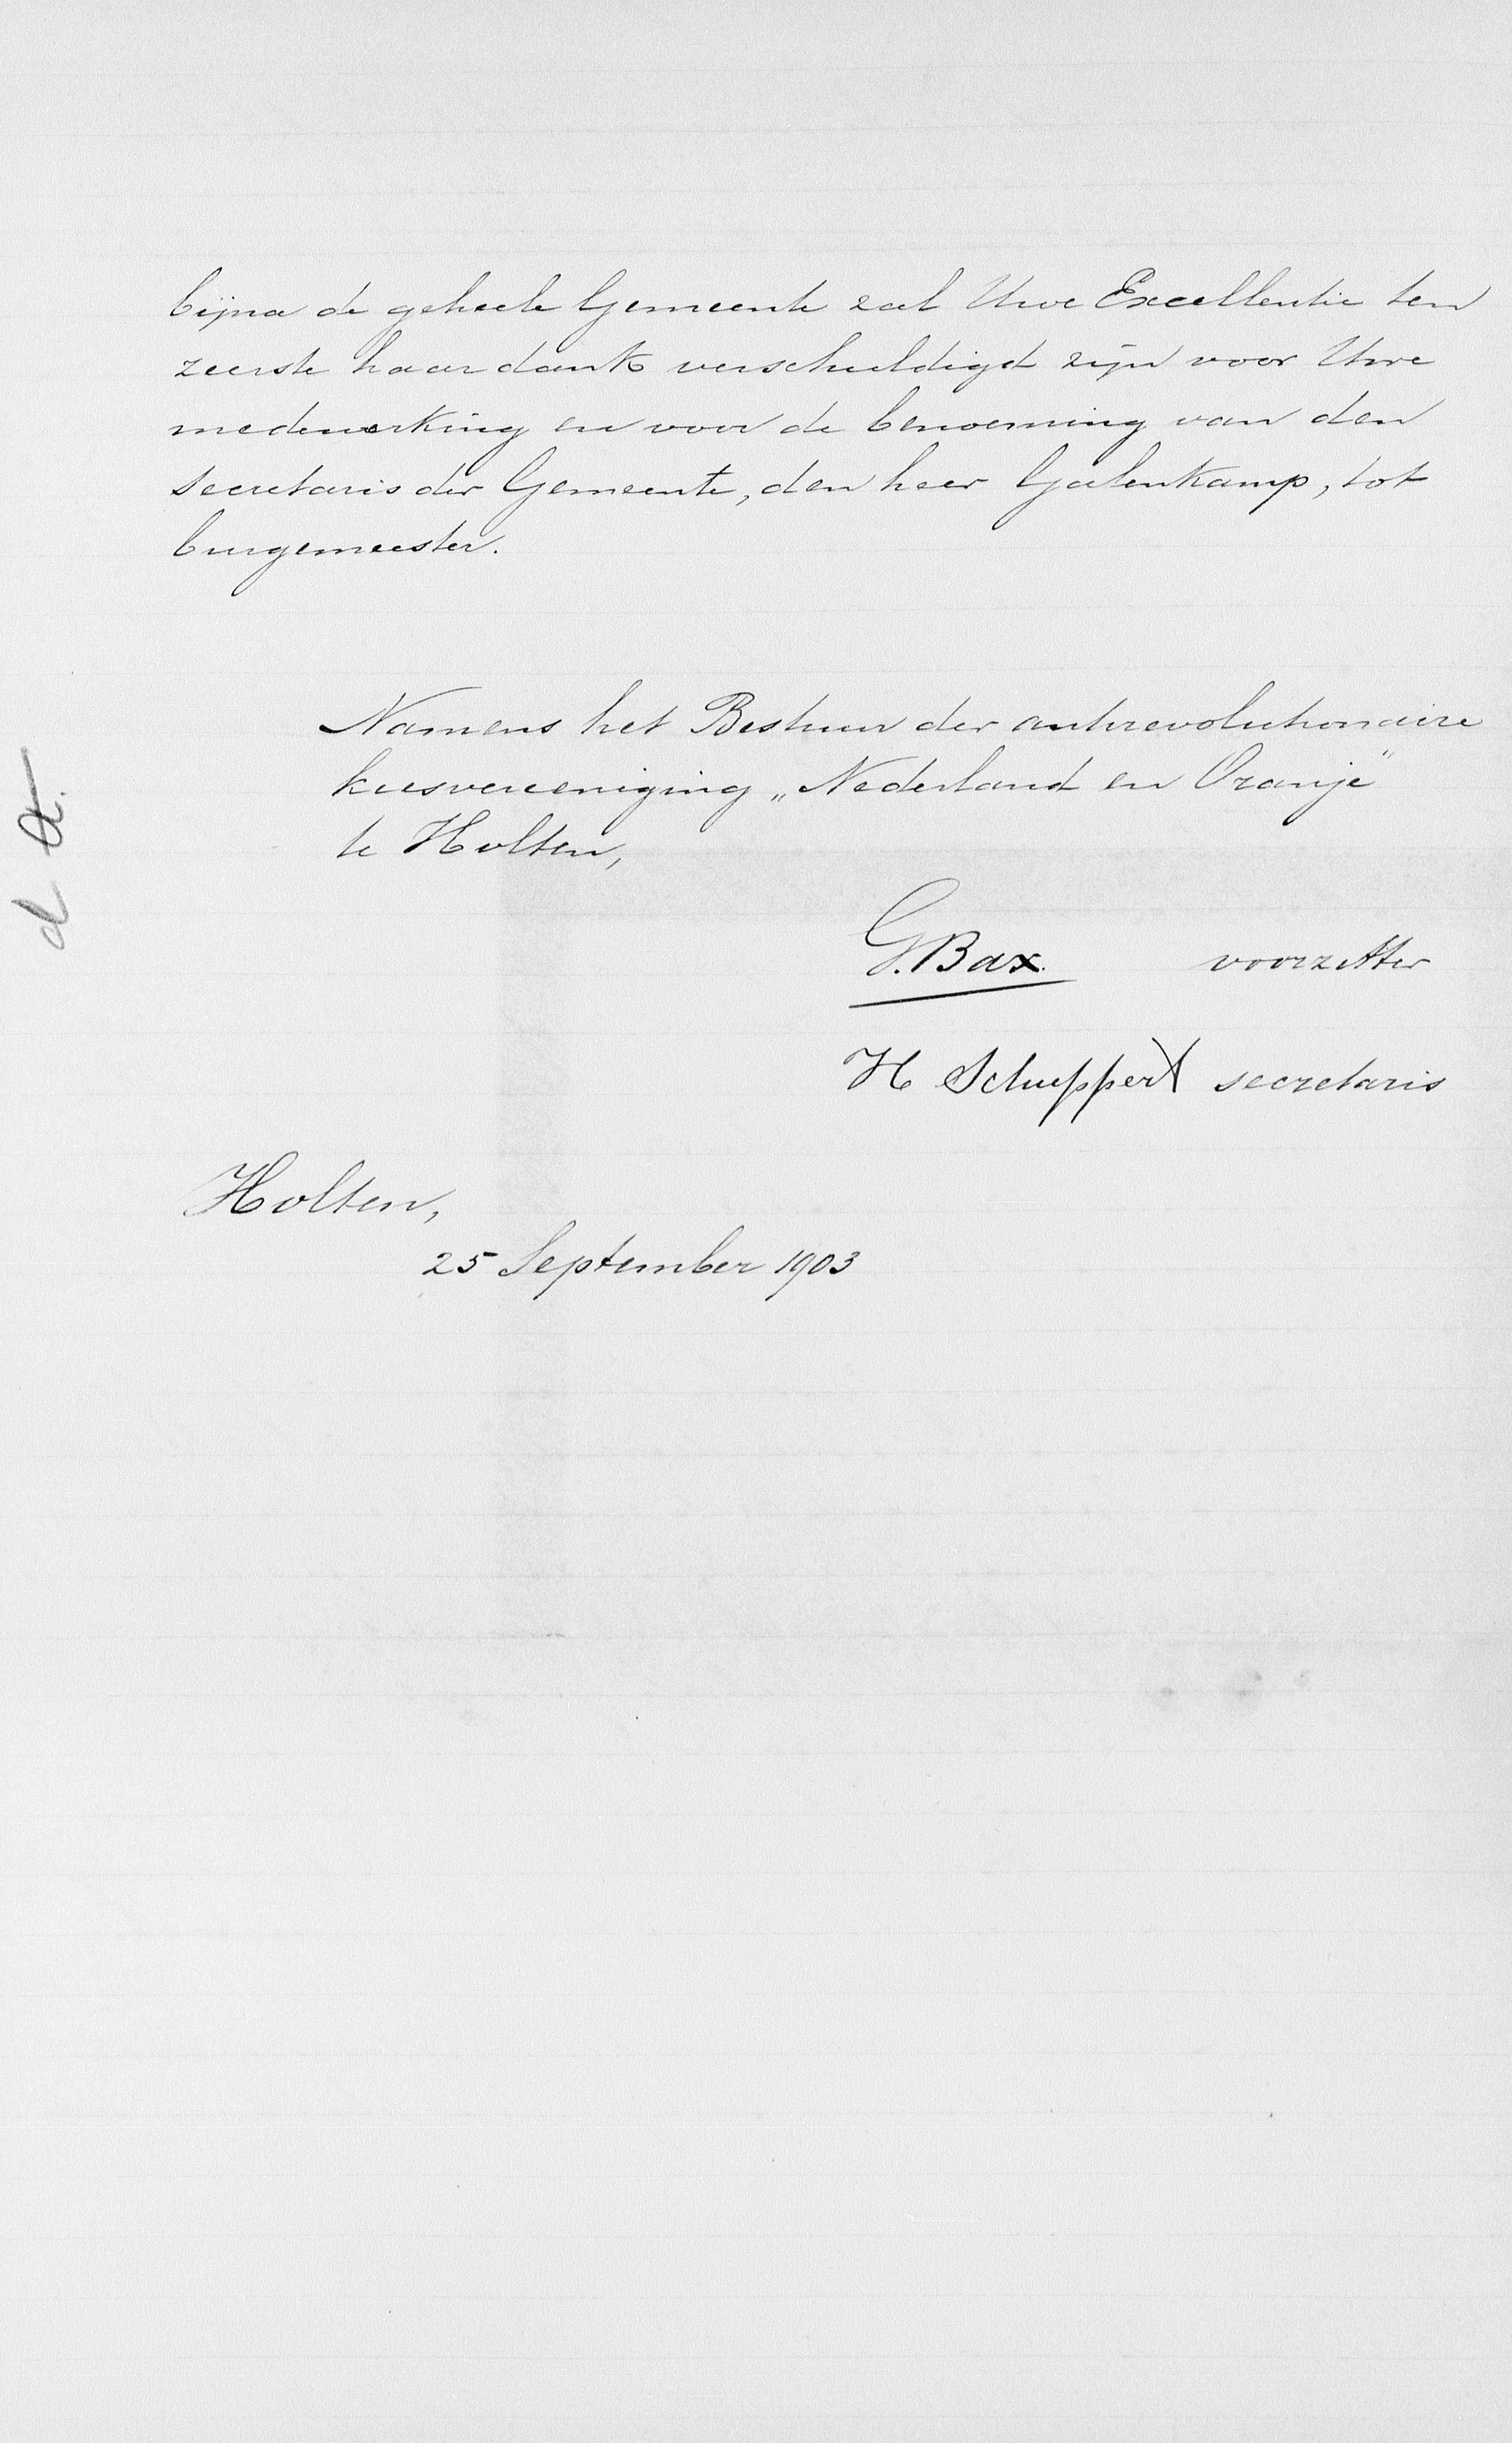 bijna de geheele Gemeente zal Uwe Excellentie ten
zeerste haar dank verschuldigd zijn voor Uwe
medewerking en voor de benoeming van den
secretaris der Gemeente, den heer Galenkamp, tot
burgemeester.
Namens het Bestuur der antirevolutionaire
kiesvereeniging „Nederland en Oranje"
te Holten,
G. Bax. voorzitter
H Schuppert secretaris
Holten,
25 September 1903